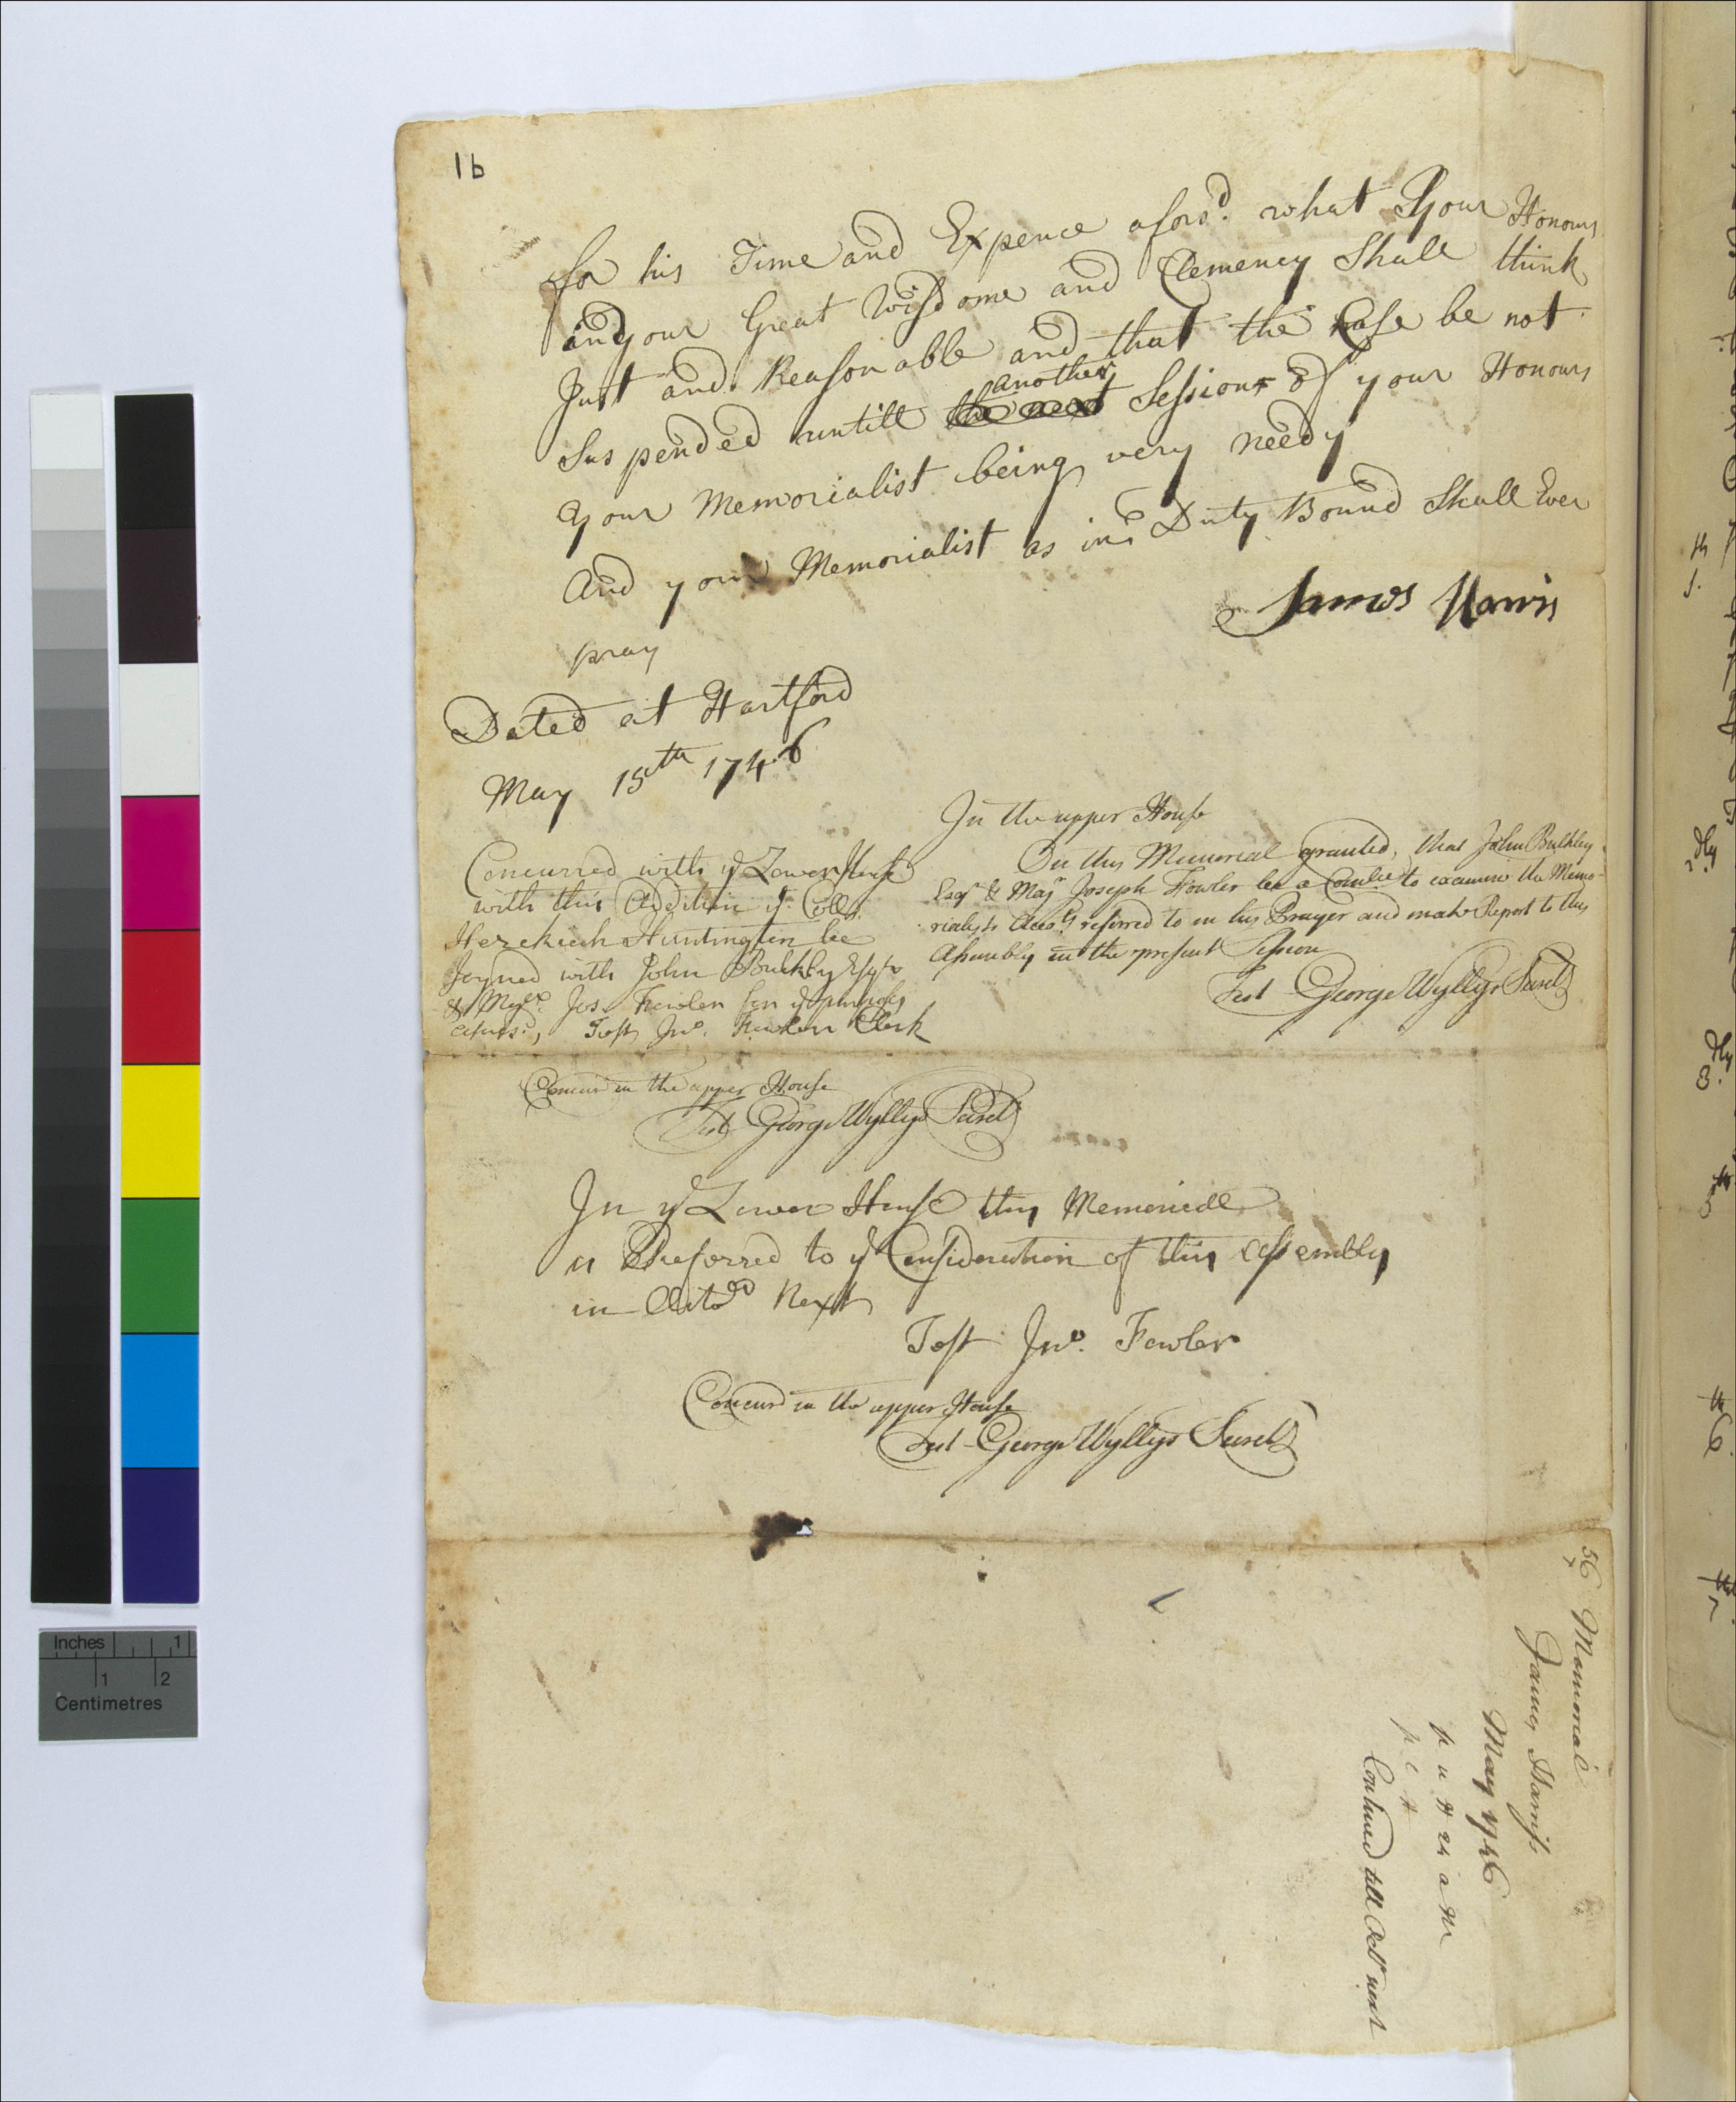 1b
for his Time and Expence afors.d what Your Honours
in your Great Wisdome and Clemency Shall think
Just and Reasonable and that the Case be not
Suspended untill the next another Session of your Honours
Your Memorialist being very needy
And your Memorialist as in Duty Bound Shall Ever
pray
James Harris
Dated at Hartford
May 15th 1746
In the upper House
On this Memorial granted, that John Bulkley
Esqr & Majr Joseph Fowler be a Comtee to examine the Memo-
rialists Accots referred to in his Prayer and make Report to this
Assembly in the present Session
Test George Wyllys Secret
Concurred with ye Lower House
with this Addition yt Collo.
Hezekiah Huntington be
Joyned with John Bulkley Esqr
& Majr Jos. Fowler for ye purposes
afors.d, Test Jno. Fowler Clerk
Concurd in the upper House
Test George Wyllys Secret
In ye Lower House this Memoriall
is Referred to ye Consideration of this Assembly
in Octor Next
Test Jno. Fowler
Concurd in the upper House
Test George Wyllys Secret
56 Memorial
James Harriss
May 1746
Continued till Octr next
Inches 1
1 2
Centimetres